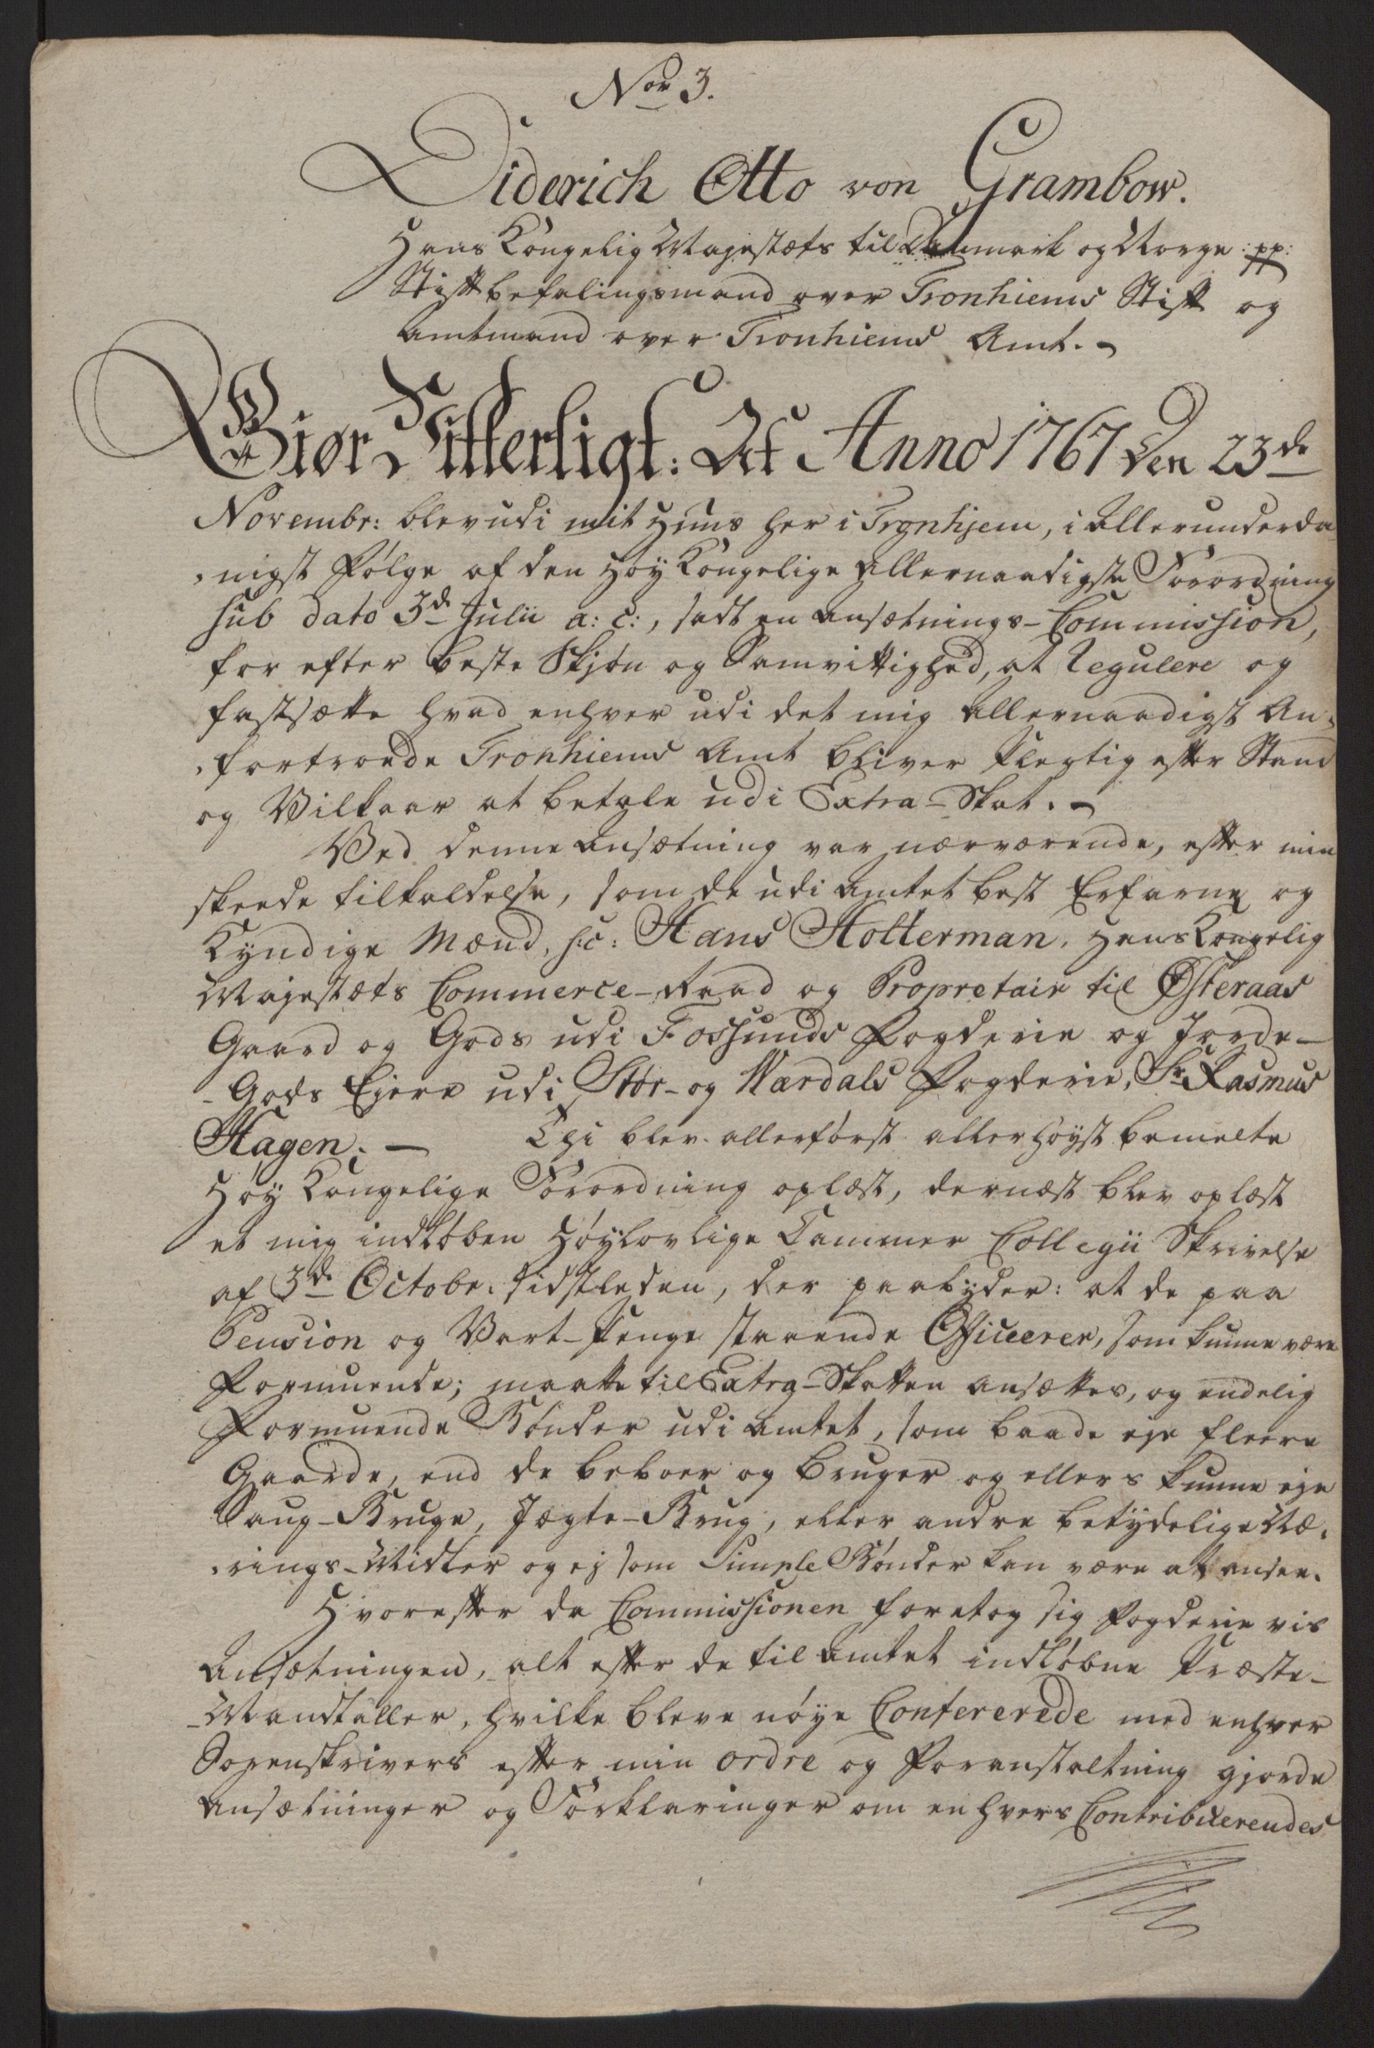 Nor 3.
Diderich Otto von Grambow.
Hans Kongelig Majestæts til Danmark og Norge :pp:
Stiftbefalingsmand over Tronhiems Stift og
Amtmand over Tronhiems Amt.
Giør Vitterligt: At Anno 1767 den 23de
Novembr: blev udi mit Huus her i Tronhjem, i Allerunderda
nigst Følge af den Høy Kongelige Allernaadigste Forordning
sub dato 3de Julii a: c:, sadt en Ansætnings-Commission,
for efter beste Skjøn og Samvittighed, at Regulere og
fastsætte hvad enhver udi det mig Allernaadigst An-
fortroede Tronhiems Amt bliver pligtig efter Stand
og Vilkaar at betale udi Extra-Skat.
Ved denne Ansætning var nærværende, efter min
skeede tilkaldelse, som de udi Amtet best Erfarne og
Kyndige Mænd, Hr: Hans Hotterman, Hans Kongelig
Majestæts Commerce-Raad og Propretair til Østeraas
Gaard og Gods udi Fossunds Fogderie og Jorde-
-Gods Ejere udi Stør- og Wardals Fogderie, Sr. Rasmus
Hagen; Thi blev allerførst allerhøyst bemelte
Høy Kongelige Forordning oplæst, dernæst blev oplæst
et mig indkløben Høylovlige Cammer Collegii Skrivelse
af 3de Octobr. sidstleden, der paabyder: at de paa
Pension og Vart-Penge staaende Officerer, som kunne være
Formuende; maatte til Extra-Skatten ansættes, og endelig
Formuende Bønder udi Amtet, som baade eje fleere
Gaarde, end de beboer og bruger og ellers kunne eje
Saug-Bruge, Jægte-Brug, eller andre betydelige Næ-
rings-Midler og ej som Simple Bønder kan være at ansee.
Hvorefter da Commissionen foretog sig Fogderie vis
Ansætningen, alt efter de til Amtet indløbne Præste-
-Mandtaller, hvilke bleve nøye Confererede med enhver
Sorenskrivers efter min ordre og Foranstaltning gjorde
Ansætninger og Forklaringer om enhvers Contribuerendes